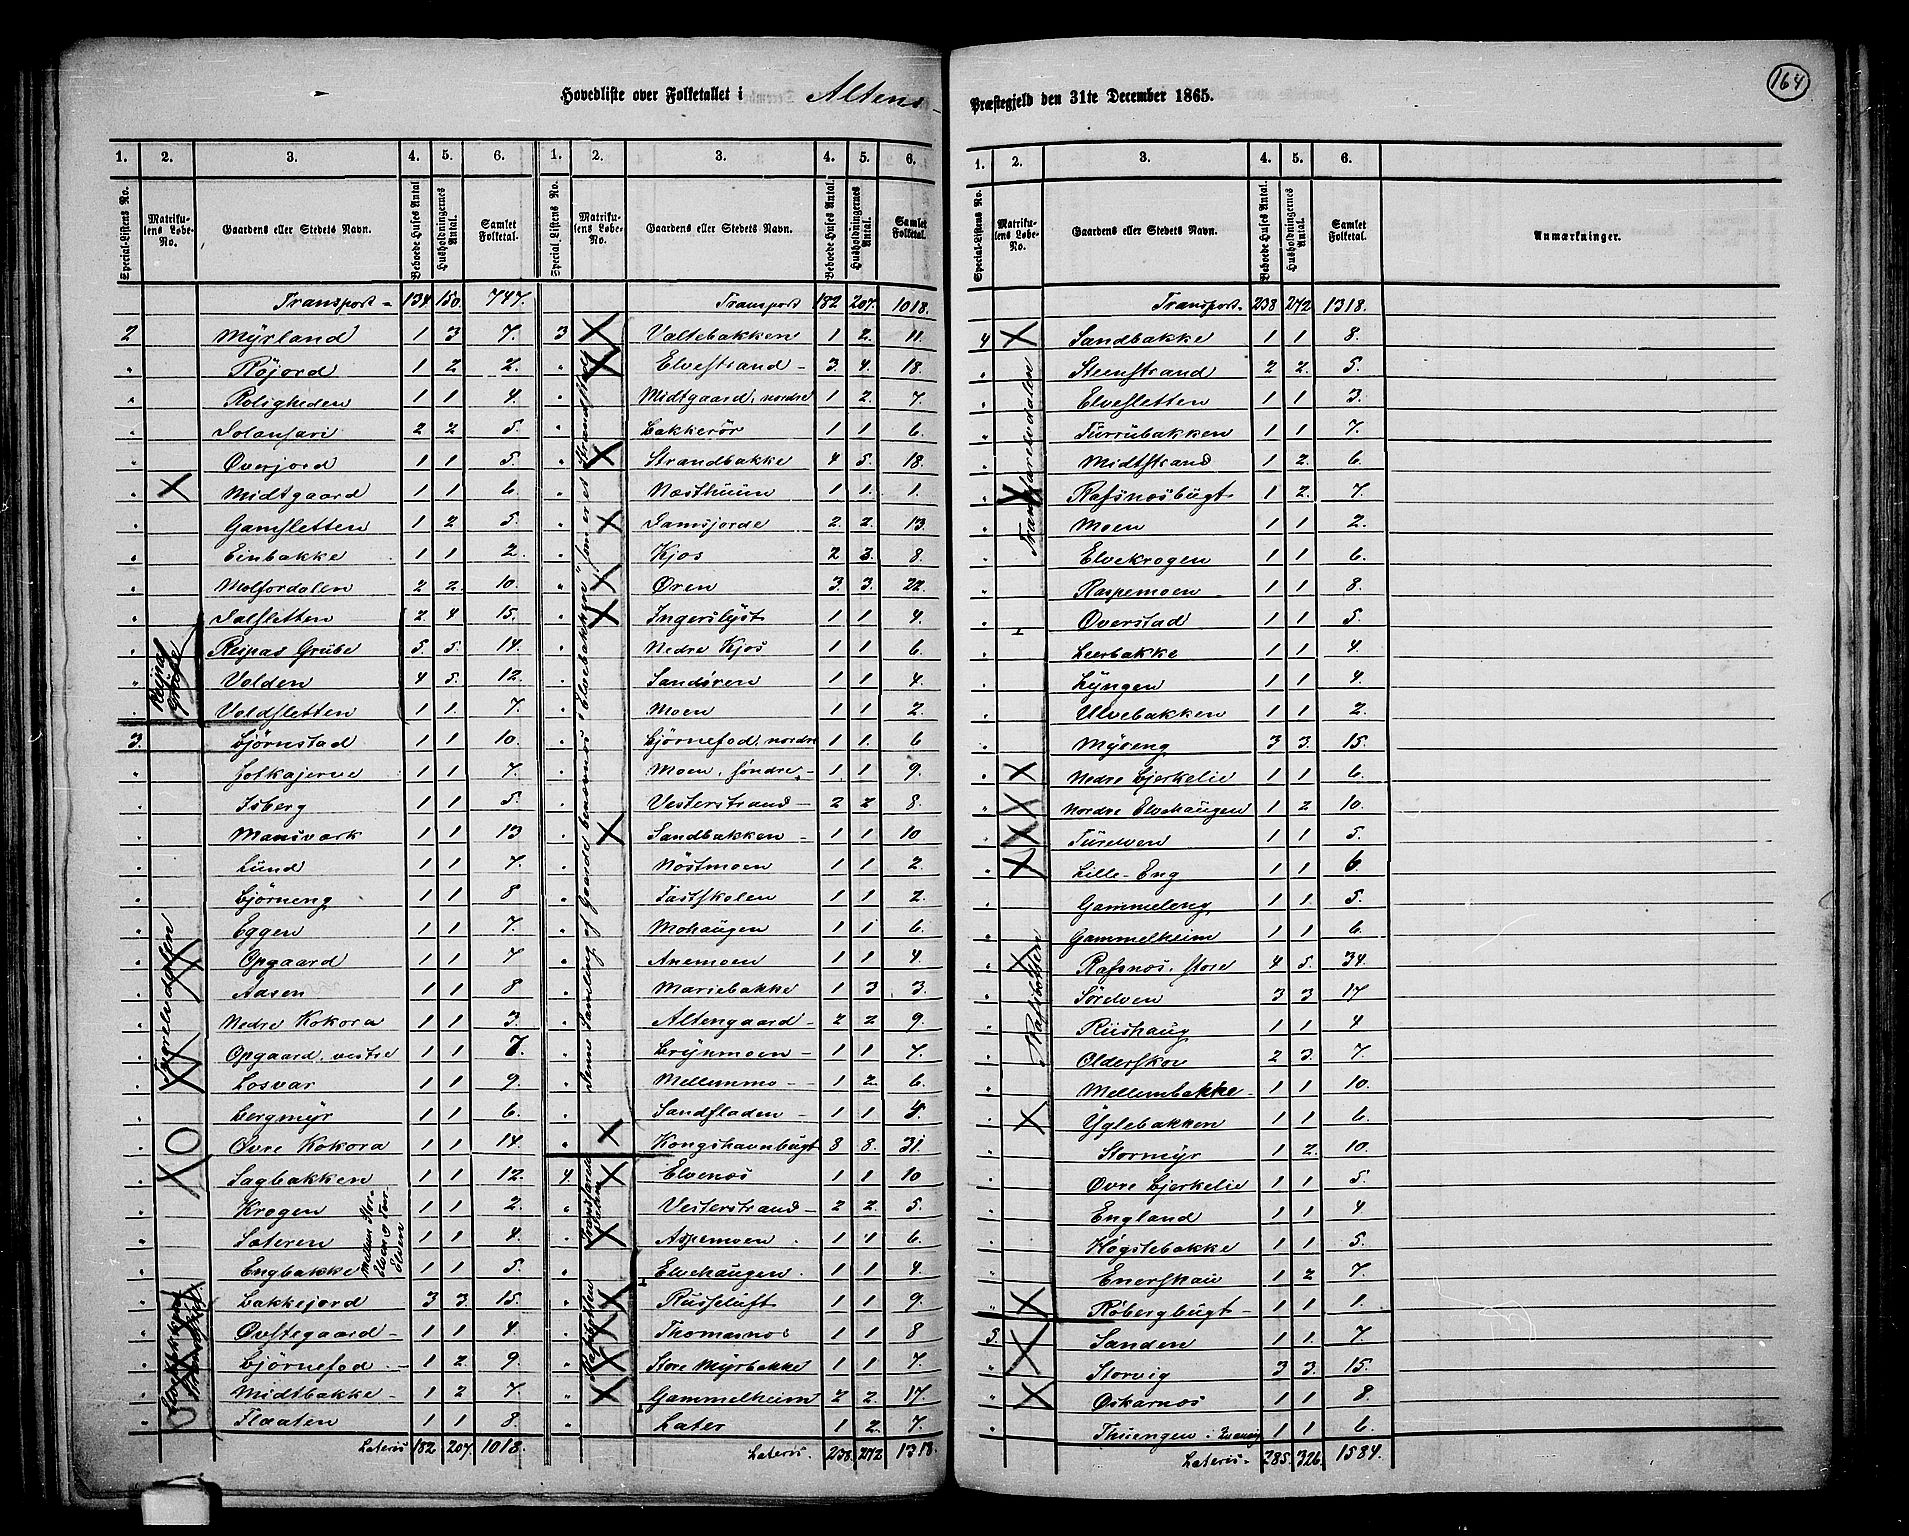 164
Hovedliste over Folketallet i Altens Præstegjeld den 31te December 1865.
1. 2. 3. 4. 5. 6.
Special-Listens No. Matrikulens Løbe-No. Gaardens eller Stedets Navn. Beboede Huses Antal. Husholdningernes Antal. Samlet Folketal.
Transport - 134 150 747.
2 Myrland 1 3 7.
" Røjord 1 2 2.
" Roligheden 1 1 4.
" 2 2 5.
" Øverjord 1 1 5.
" Midtgaard 1 1 6
" Gamsletten 1 2 5.
" Einbakke 1 1 2.
" Molfordalen 2 2 10.
" Jalsletten 2 4 15.
" Reipas Grube 5. 5. 14.
" Volden 4 5. 12.
" Voldsletten 1 1 7.
Reipas Grube
3. Bjørnstad 1 1 10.
" Jotkajerve 1 1 7.
" Isberg 1 1 5.
" Mansværk 1 1 13
" Lund 1 1 7.
" Bjørneng 1 1 8
" Eggen 1 1 7.
" Opgaard 1 1 7
" Aasen 1 1 8
" Nedre Kokora 1 1 3.
" Opgaard, vestre 1 1 7.
" Losvar 1 1 9.
" Bergmyr 1 1 6.
" Øvre Kokora 1 1 14.
" Sagbakken 1 1 12.
" Krogen 1 1 2.
" Sæteren 1 1 4.
" Engbakke 1 1 5.
Mellem Store Elven & Tverelven
Tverelvdalen
" Bakkejord 3 3. 15.
" Øvstegaard - 1 1 4.
" Bjørnefod - 1 2. 9.
" Midtbakke - 1 2 7
" Flaaten 1 1 8.
Lateris 182. 207. 1018.
1. 2. 3. 4. 5. 6.
Special Listens No. Matrikulens Løbe-No. Gaardens eller Stedets Navn. Beboede Huses Antal. Husholdningernes Antal. Samlet Folketal.
Transport 182 207. 1018.
3 Valtebakken 1 2. 11.
" Elvestrand - 3 4. 18.
" Midtgaard, nordre 1 2. 7.
" Bakkerør 1 1 6.
" Strandbakke 4 5. 18.
" Næsthuun 1 1. 1.
" Jamsjorde 2. 2. 13.
" Kjos 2 3. 8.
" Øren 3 3. 22.
" Ingerslyst 1 1 4.
" Nedre Kjos 1 1 6.
" Sandøren 1 1 4.
" Moen 1 1 2.
" Bjørnefod, nordre 1 1. 6
" Moen, søndre - 1 1 9.
" Vesterstrand - 2 2 8.
" Sandbakken - 1 1 10
" Nøstmoen 1 1 2.
" Fastskolen 1 1 2.
" Mohaugen 1 1 6.
" Anemoen 1 1 4.
" Mariebakke 1 3 3.
" Altengaard - 2 2 9.
" Brynmoen - 1 1 7.
" Mellemmo - 1 2. 6.
" Sandfladen - 1 1 5.
" Kongshavnbugt 8 8. 31.
Denne Samling af Gaarde benævnes "Elvebakken" som er et Strandsted
4. Elvenæs 1 1 10
" Vesterstrand - 2 2. 5.
" Aspemoen. 1 1 6.
" Elvehaugen. 1 1 4.
" Russeluft 1 1 9.
" Thomasnæs 1 1 8
" Store Myrbakke 1 1 7.
" Gammelheim 2 2. 17.
" Later 1 2. 7.
Rafsbotten
Lateris. 238. 272 1318.
1. 2. 3. 4. 5. 6.
Special-Listens No. Matrikulens Løbe-No. Gaardens eller Stedets Navn. Beboede Huses Antal. Husholdningernes Antal. Samlet Folketal. Anmærkninger.
Transport. 238 272 1318.
4 Sandbakke 1 1 8.
" Steenstrand 2 2. 5.
" Elvesletten 1 1 3.
" Furrubakken 1 1 7.
" Midtstrand 1 2. 6.
" Rafsnæsbugt 1 2. 7.
" Moen 1 1 2.
" Elvekrogen 1 1 6.
" Raspemoen 1 1 8.
" Øverstad 1 1 5.
" Leerbakke 1 1 4.
" Lyngen 1 1 4.
" Ulvebakken 1 1 2.
" Myreng 3 3. 15.
" Nedre Bjerkelie 1 1 6.
" Nordre Elvehaugen 1 2 10.
" Turelven 1 1 5.
" Lille-Eng 1 1 6
" Gammeleng 1 1 5.
" Gammelheim 1 1 6.
" Rafsnæs, store 4 5. 34.
" Sørelven 3 3 17
" Riishaug 1 1 4
" Olderskov 2 3. 7.
" Mellembakke - 1 1 10.
" Yglebakken 1 1 6.
" Stormyr 1 2. 10.
" Øvre Bjerkelie 1 1 5.
" England 1 1 4
" Høgstebakke 1 1 5.
" Enerskau 1 2 7.
" Røbergbugt - 1 1 1.
Rafsbotten
5. Sanden 1 1. 7.
" Storvig 3 3. 15.
" Oskarnæs 1 1 8.
" Thuengen. 1 1 6.
Lateris - 285. 326. 1584.